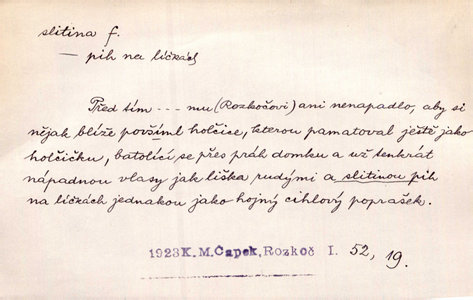 slitina f.
— pih na líčkách
Před tím --- mu (Rozkočovi) ani nenapadlo, aby si
nějak blíže povšiml holčice, kterou pamatoval ještě jako
holčičku, batolící se přes práh domku a už tenkrát
nápadnou vlasy jak liška rudými a slitinou pih
na líčkách jednakou jako hojný cihlový poprašek.
1923 K.M.Čapek, Rozkoč I. 52, 19.